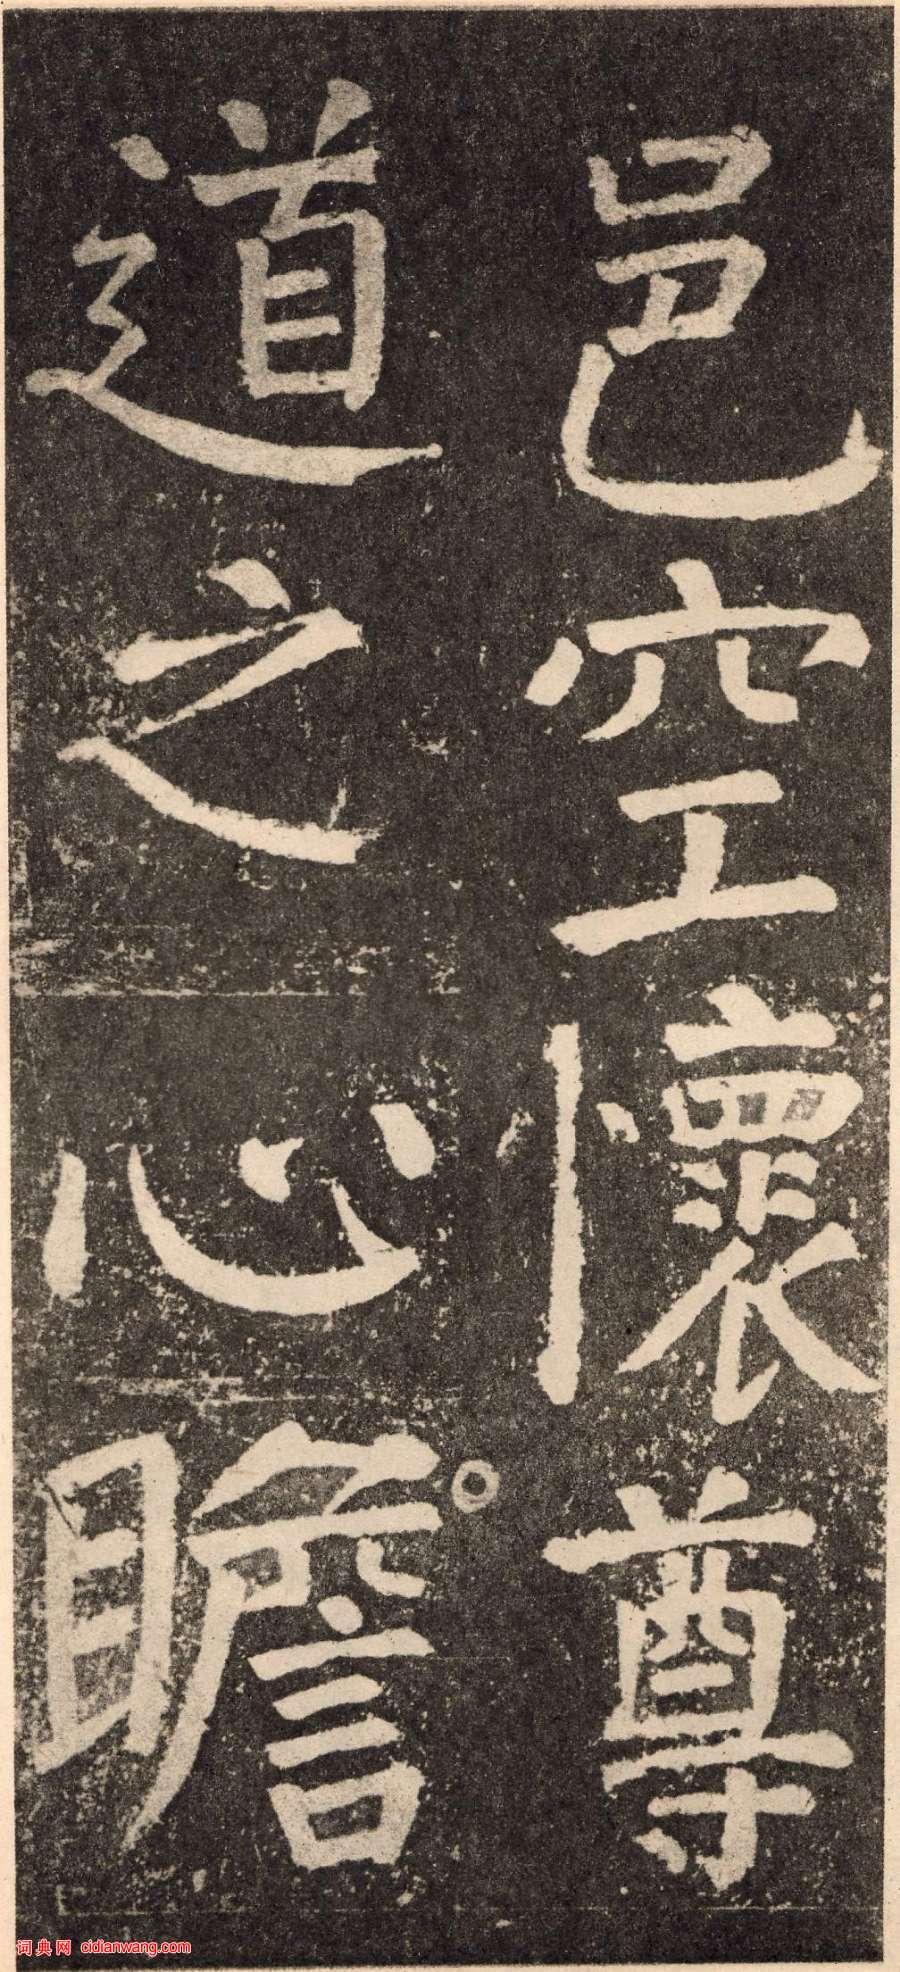 邑空懷尊
道之心瞻
词典网 cidianwang.com